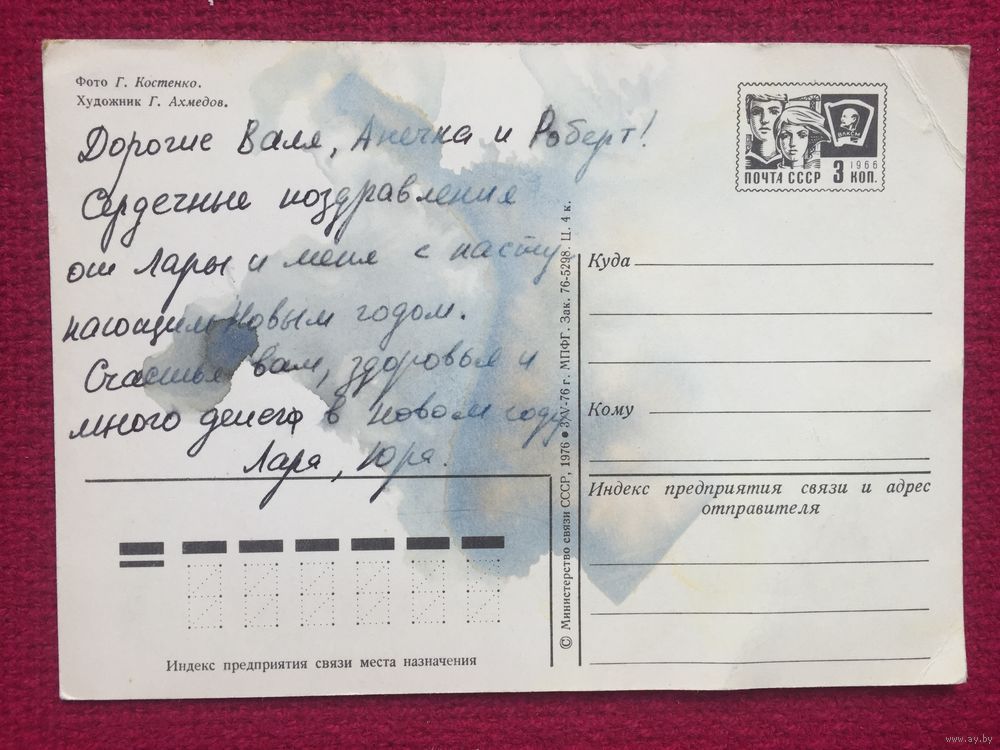 Фото Г. Костенко.
Художник Г. Ахмедов.
Дорогие Валя, Анечка и Роберт!
Сердечные поздравления
от Лары и меня с насту
пающим Новым годом.
Счастья вам, здоровья и
много денег в новом году
Лара, Юра.
Индекс предприятия связи места назначения
© Министерство связи СССР, 1976 ● 3/V-76 г. МПФГ. Зак. 76-5298. Ц. 4 к.
ВЛКСМ
1966
ПОЧТА СССР 3 КОП.
Куда
Кому
Индекс предприятия связи и адрес
отправителя
www.ay.by